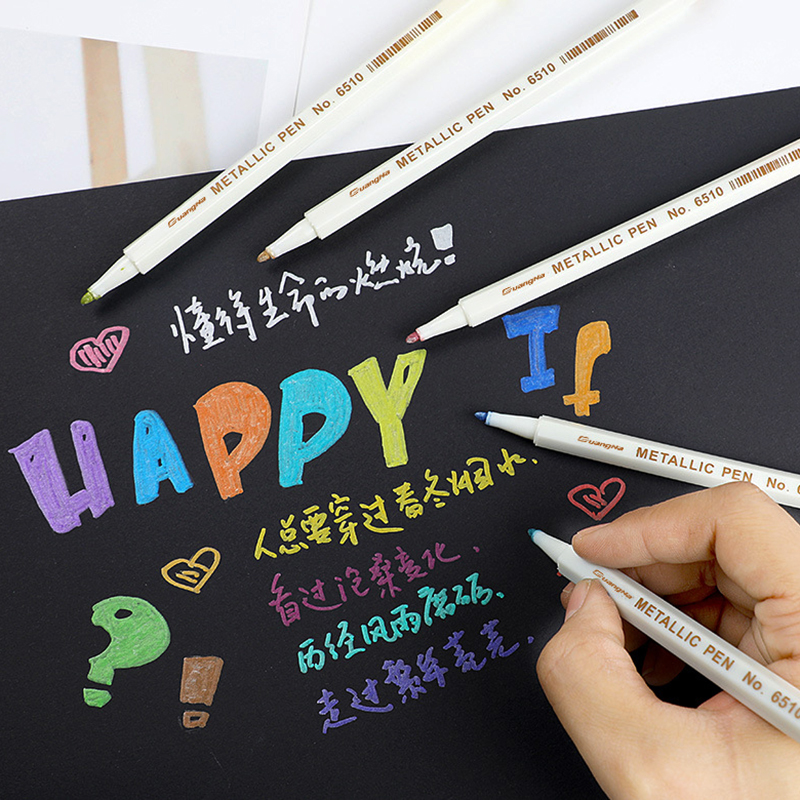 GuangNa METALLIC PEN No. 6510
GuangNa METALLIC PEN No. 6510
GuangNa METALLIC PEN No. 6510
懂得生命的燃烧!
If
HAPPY
GuangNa METALLIC PEN No. 6
人总要穿过春冬
看过沧桑变化、
历经风雨磨砺、
走过繁华
GuangNa METALLIC PEN No. 6510
?!